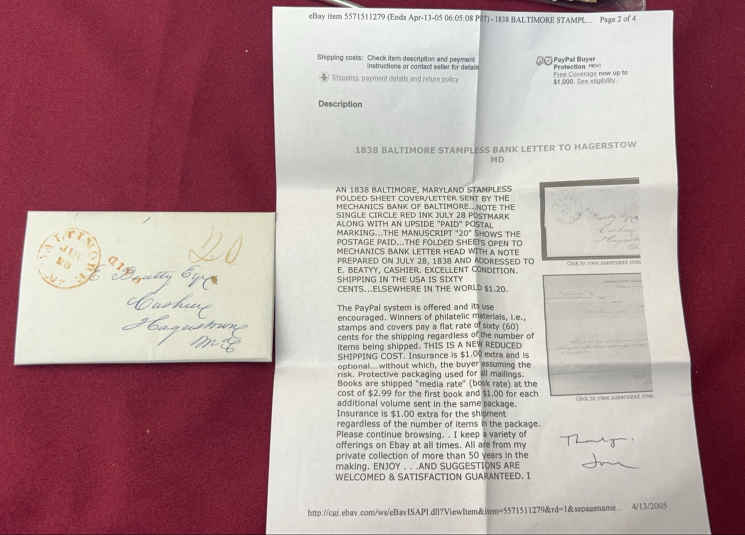 eBay item 5571511279 (Ends Apr-13-05 06:05:08 PDT) - 1838 BALTIMORE STAMPL... Page 2 of 4
Shipping costs: Check item description and payment
instructions or contact seller for details
Shipping, payment details and return policy
PayPal Buyer
Protection NEW!
Free Coverage now up to
$1,000. See eligibility.
Description
1838 BALTIMORE STAMPLESS BANK LETTER TO HAGERSTOW
MD
AN 1838 BALTIMORE, MARYLAND STAMPLESS
FOLDED SHEET COVER/LETTER SENT BY THE
MECHANICS BANK OF BALTIMORE...NOTE THE
SINGLE CIRCLE RED INK JULY 28 POSTMARK
ALONG WITH AN UPSIDE "PAID" POSTAL
MARKING...THE MANUSCRIPT "20" SHOWS THE
POSTAGE PAID...THE FOLDED SHEETS OPEN TO
MECHANICS BANK LETTER HEAD WITH A NOTE
PREPARED ON JULY 28, 1838 AND ADDRESSED TO
E. BEATYY, CASHIER. EXCELLENT CONDITION.
SHIPPING IN THE USA IS SIXTY
CENTS...ELSEWHERE IN THE WORLD $1.20.
The PayPal system is offered and its use
encouraged. Winners of philatelic materials, i.e.,
stamps and covers pay a flat rate of sixty (60)
cents for the shipping regardless of the number of
items being shipped. THIS IS A NEW REDUCED
SHIPPING COST. Insurance is $1.00 extra and is
optional...without which, the buyer assuming the
risk. Protective packaging used for all mailings.
Books are shipped "media rate" (book rate) at the
cost of $2.99 for the first book and $1.00 for each
additional volume sent in the same package.
Insurance is $1.00 extra for the shipment
regardless of the number of items in the package.
Please continue browsing. . I keep a variety of
offerings on Ebay at all times. All are from my
private collection of more than 50 years in the
making. ENJOY . . .AND SUGGESTIONS ARE
WELCOMED & SATISFACTION GUARANTEED. I
Click to view supersized image
Click to view supersized image
http://cgi.ebay.com/ws/eBayISAPI.dll?ViewItem&item=5571511279&rd=1&sspagename... 4/13/2005
BALTIMORE
28
PAID
20
E Beatty Esqr
Cashier
Hagerstown
Md